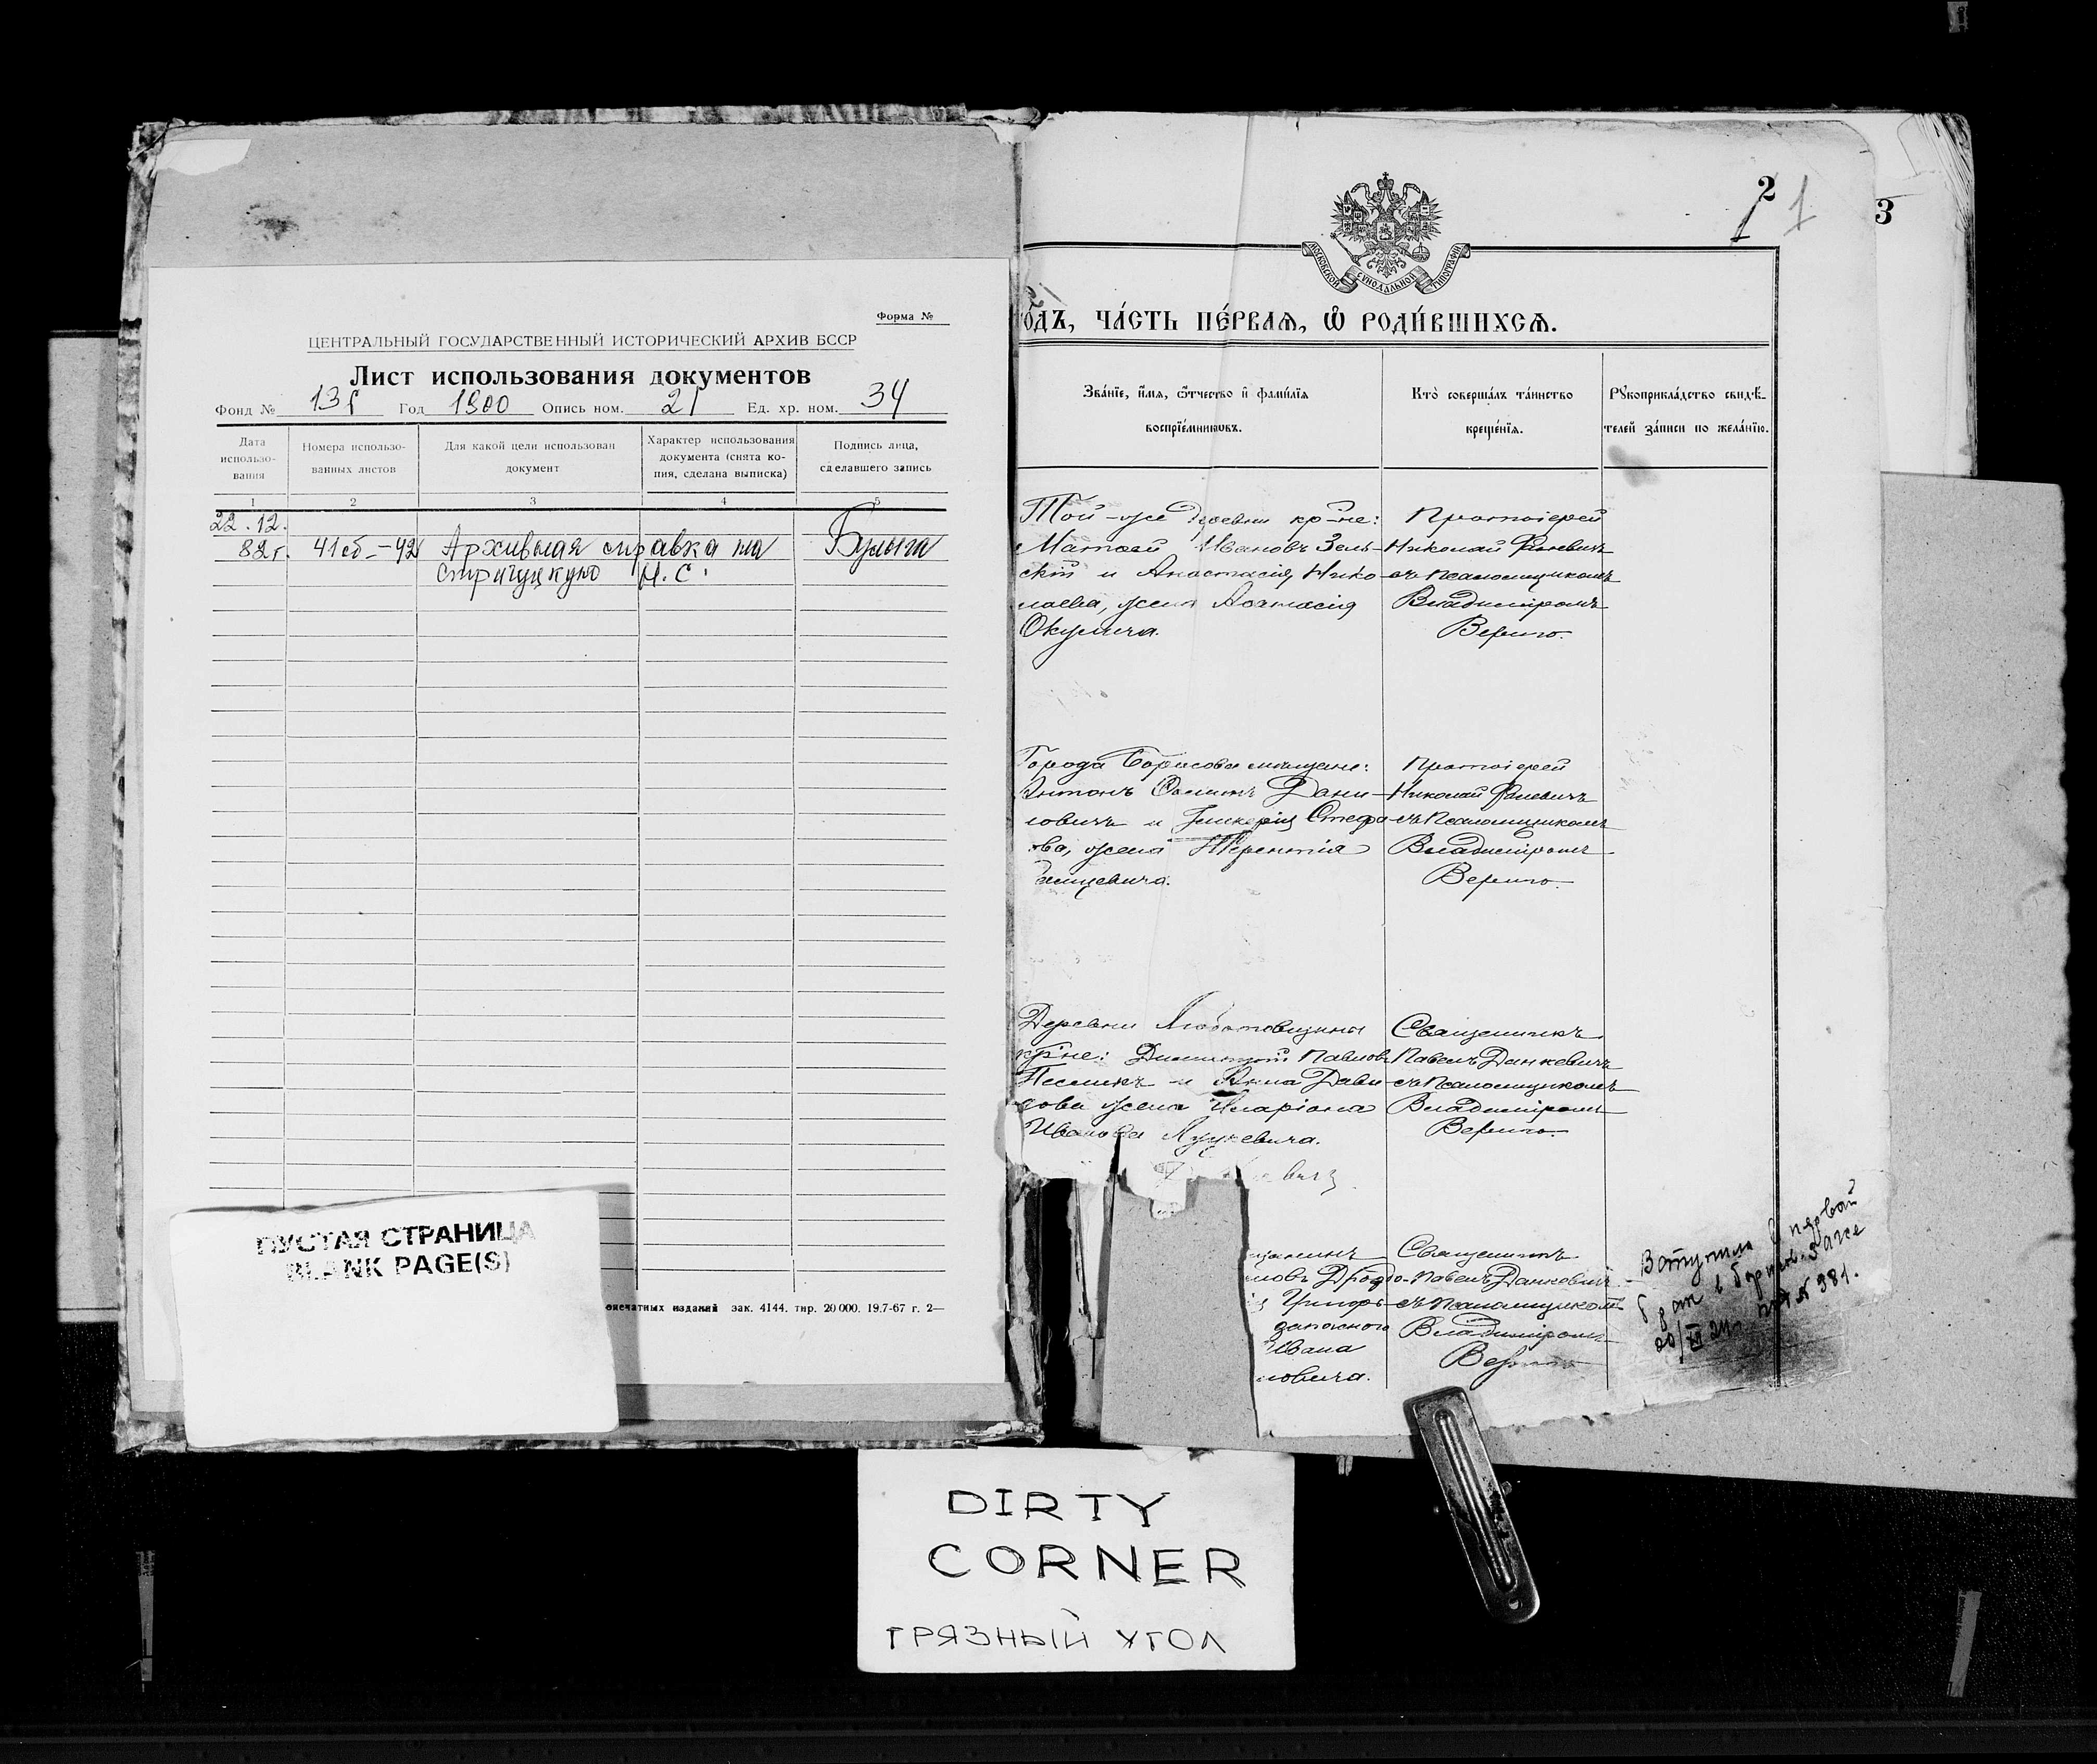 Форма №
ЦЕНТРАЛЬНЫЙ ГОСУДАРСТВЕННЫЙ ИСТОРИЧЕСКИЙ АРХИВ БССР
Лист использования документов
Фонд № 136 Год 1900 Опись ном. 21 Ед. хр. ном. 34
Дата использо-вания
Номера использо-ванных листов
Для какой цели использован документ
Характер использования документа (снята ко-пия, сделана выписка)
Подпись лица, сделавшего запись
1 2 3 4 5
22.12.
82 г. 41об-42 Архивная справка на
Стригуцкую Н.С.
ПУСТАЯ СТРАНИЦА
BLANK PAGE(S)
зак. 4144. тир. 20 000. 19.7-67 г. 2—
2 1
3
МОСКОВСКОЙ СѴНОДАЛЬНОЙ ТИПОГРАФІИ
ГО́ДЪ, ЧА́СТЬ ПЕ́РВАѦ, Ѡ҆ РОДИ́ВШИХСѦ.
Зва́нїе, и҆́мѧ, ѻ҆́тчество и҆ фами́лїѧ
воспрїе́мниковъ.
Кто̀ соверша́лъ та́инство
креще́нїѧ.
Рꙋкоприкла́дство свидѣ́-
телей за́писи по жела́нїю.
Той-же деревни кр-не:
Матѳей Ивановъ Зель-
скій и Анастасія Нико-
лаева, жена Аѳанасія
Окулича.
Протоіерей
Николай
съ псаломщикомъ
Владиміромъ
Вериго.
Города Борисова мѣщане:
Антонъ Дани-
ловичъ и Гликерія Стефа-
ова, жена Терентія
Протоіерей
Николай
съ псаломщикомъ
Владиміромъ
Вериго.
Деревни
кр-не: Димитрій Павловъ
Песликъ и Анна Дави-
дова жена Иларіона
Иванова Луцкевича.
Священникъ
Павелъ Данкевичъ
съ псаломщикомъ
Владиміромъ
Вериго.
щанинъ
Григорь-
запаснаго
Ивана
ловича.
Священникъ
Павелъ Данкевичъ
съ псаломщикомъ
Владиміромъ
Вериго
Вступила в первый
брак в
№ 981.
DIRTY
CORNER
ГРЯЗНЫЙ УГОЛ